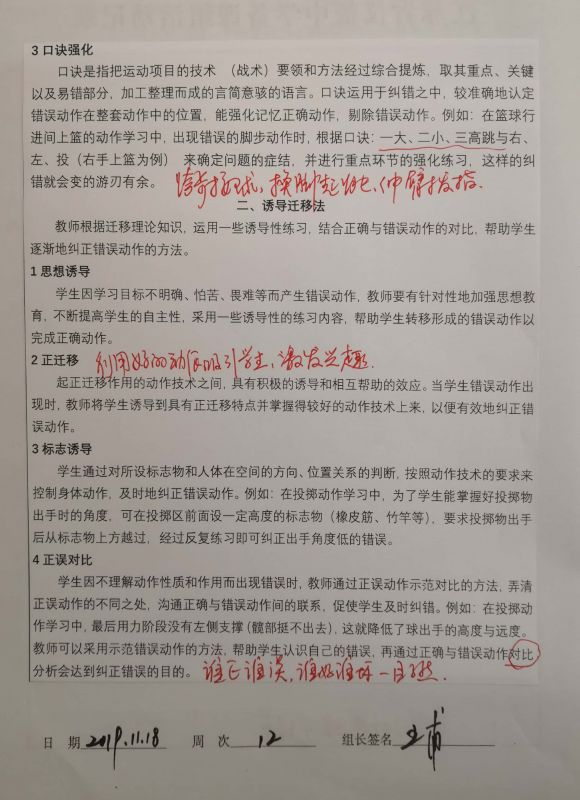 3 口诀强化
口诀是指把运动项目的技术 （战术）要领和方法经过综合提炼，取其重点、关键
以及易错部分，加工整理而成的言简意骇的语言。口诀运用于纠错之中，较准确地认定
错误动作在整套动作中的位置，能强化记忆正确动作，剔除错误动作。例如：在篮球行
进间上篮的动作学习中，出现错误的脚步动作时，根据口诀：一大、二小、三高跳与右、
左、投（右手上篮为例） 来确定问题的症结，并进行重点环节的强化练习，这样的纠
错就会变的游刃有余。
二、诱导迁移法
教师根据迁移理论知识，运用一些诱导性练习，结合正确与错误动作的对比，帮助学生
逐渐地纠正错误动作的方法。
1 思想诱导
学生因学习目标不明确、怕苦、畏难等而产生错误动作，教师要有针对性地加强思想教
育，不断提高学生的自主性，采用一些诱导性的练习内容，帮助学生转移形成的错误动作以
完成正确动作。
2 正迁移 利用好的动作吸引学生，激发兴趣.
起正迁移作用的动作技术之间，具有积极的诱导和相互帮助的效应。当学生错误动作出
现时，教师将学生诱导到具有正迁移特点并掌握得较好的动作技术上来，以便有效地纠正错
误动作。
3 标志诱导
学生通过对所设标志物和人体在空间的方向、位置关系的判断，按照动作技术的要求来
控制身体动作，及时地纠正错误动作。例如：在投掷动作学习中，为了学生能掌握好投掷物
出手时的角度，可在投掷区前面设一定高度的标志物（橡皮筋、竹竿等），要求投掷物出手
后从标志物上方越过，经过反复练习即可纠正出手角度低的错误。
4 正误对比
学生因不理解动作性质和作用而出现错误时，教师通过正误动作示范对比的方法，弄清
正误动作的不同之处，沟通正确与错误动作间的联系，促使学生及时纠错。例如：在投掷动
作学习中，最后用力阶段没有左侧支撑（髋部挺不出去），这就降低了球出手的高度与远度。
教师可以采用示范错误动作的方法，帮助学生认识自己的错误，再通过正确与错误动作对比
分析会达到纠正错误的目的。 谁正谁误，谁好谁坏一目了然.
日 期 2019.11.18 周 次 12 组长签名